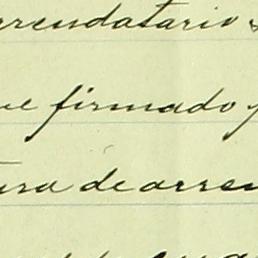 arrendatario
ue firmado y
ura de arren